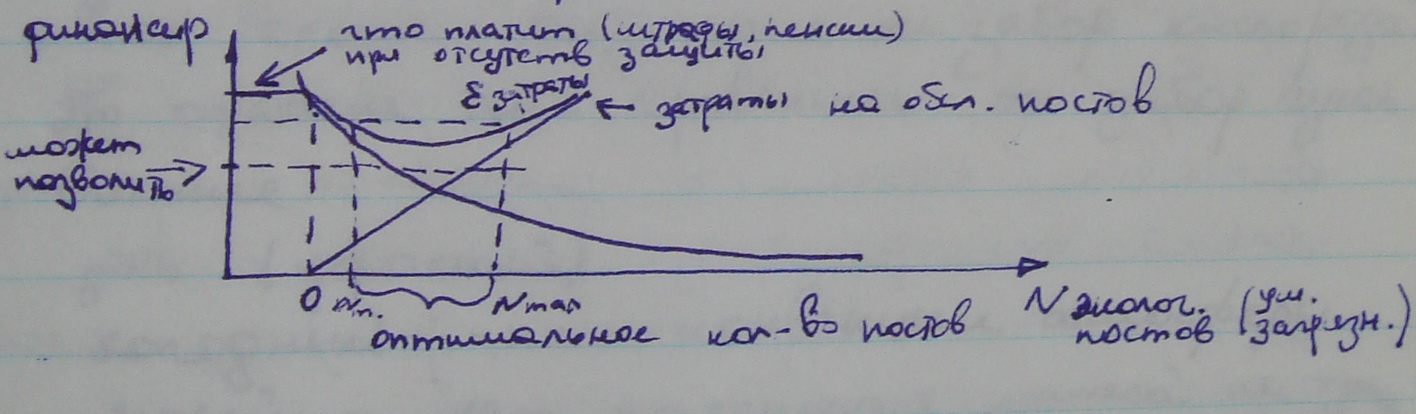 финансир
что платит (штрафы, пенсии)
при отсутств защиты
Σ затраты
затраты на обсл. постов
может
позволить
0 Nm. Nmax
оптимальное кол-во постов
N эколог. (ум.
постов загрязн.)